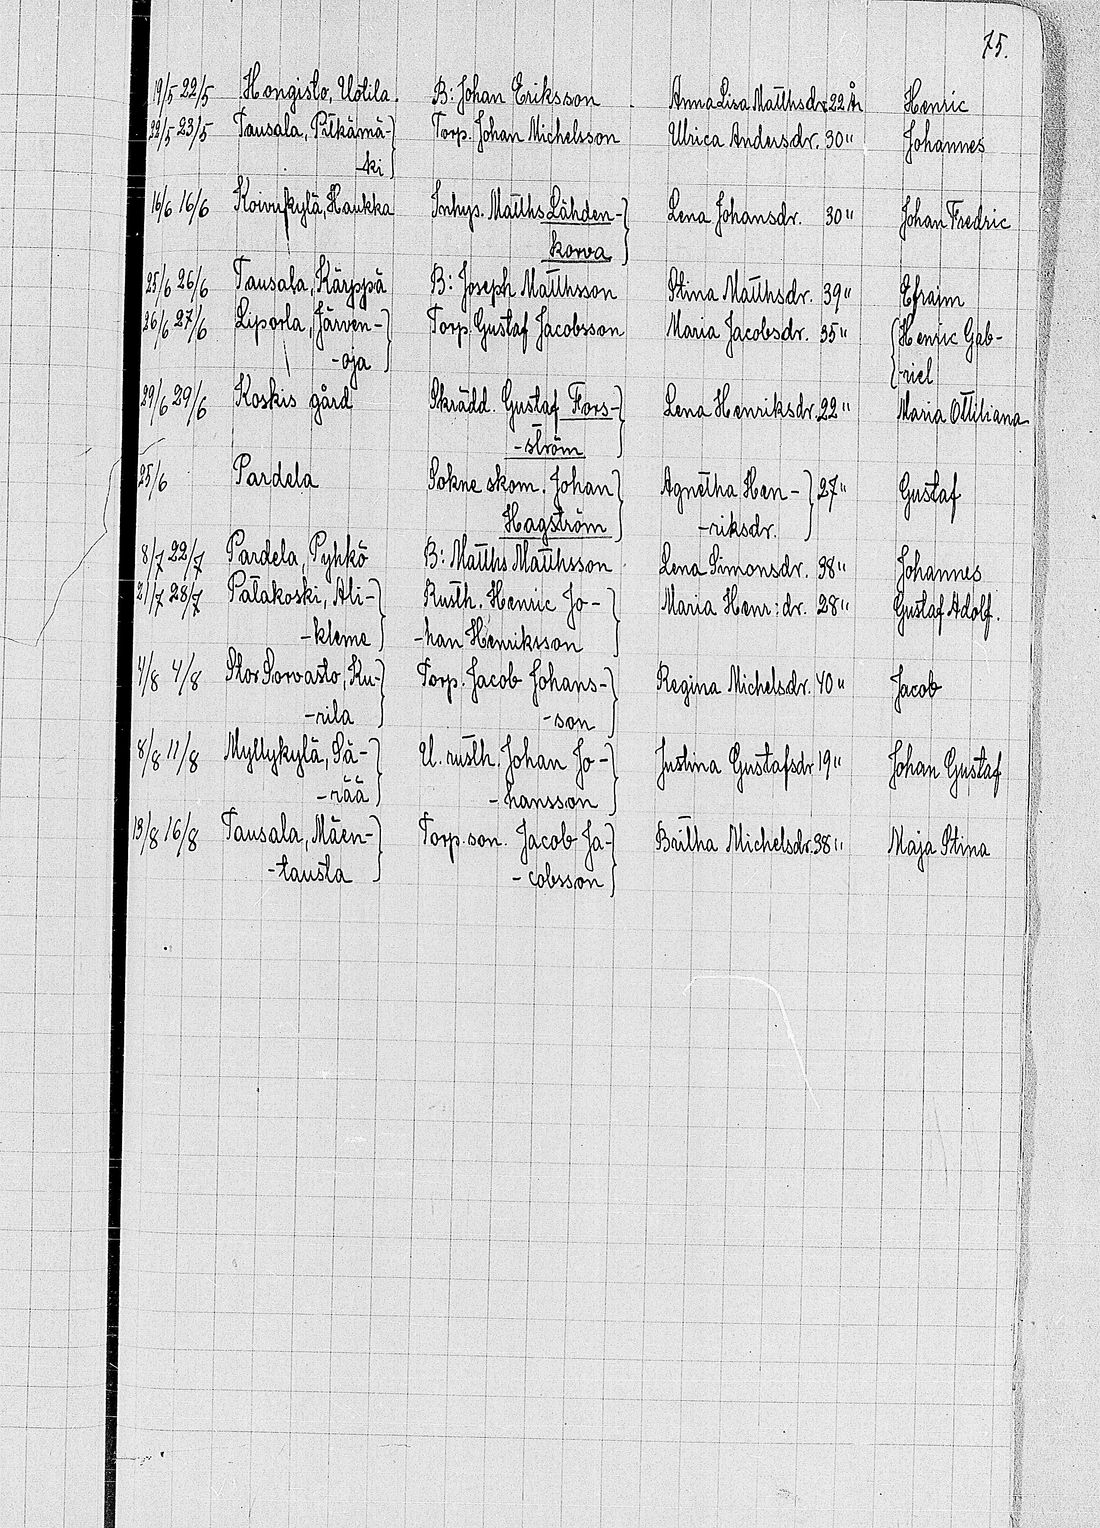 75.
19/5 22/5 Hongisto, Uotila. B: Johan Eriksson Anna Lisa Matthsdr. 22 År Henric
22/5 23/5 Tausala, Pitkämä- Torp. Johan Michelsson Ulrica Andersdr. 30 " Johannes
-ki
16/6 16/6 Koivukylä, Haukka Inhys. Matths Lähden- Lena Johansdr. 30 " Johan Fredric
korva
25/6 26/6 Tausala, Kärppä B: Joseph Matthsson Stina Matthsdr. 39 " Efraim
26/6 27/6 Liporla, Järven- Torp. Gustaf Jacobsson Maria Jacobsdr. 35 " Henric Gab-
-oja -riel
29/6 29/6 Koskis gård Skrädd. Gustaf Fors- Lena Henriksdr. 22 " Maria Ottiliana
-ström
25/6 Pardela Sokne skom. Johan Agnetha Hen- 27 " Gustaf
Hagström -riksdr.
8/7 22/7 Pardela, Pyhkö B: Matths Matthsson Lena Simonsdr. 38 " Johannes
21/7 28/7 Patakoski, Ali- Rusth. Henric Jo- Maria Henr: dr. 28 " Gustaf Adolf.
-kleme -han Henriksson
4/8 4/8 Stor Sorvasto, Ku- Torp. Jacob Johans- Regina Michelsdr. 40 " Jacob
-rila -son
8/8 11/8 Myllykylä, Sä- U. rusth. Johan Jo- Justina Gustafsdr 19 " Johan Gustaf
-rää -hansson
13/8 16/8 Tausala, Mäen- Torp. son. Jacob Ja- Britha Michelsdr. 38 " Maja Stina
-tausta -cobsson